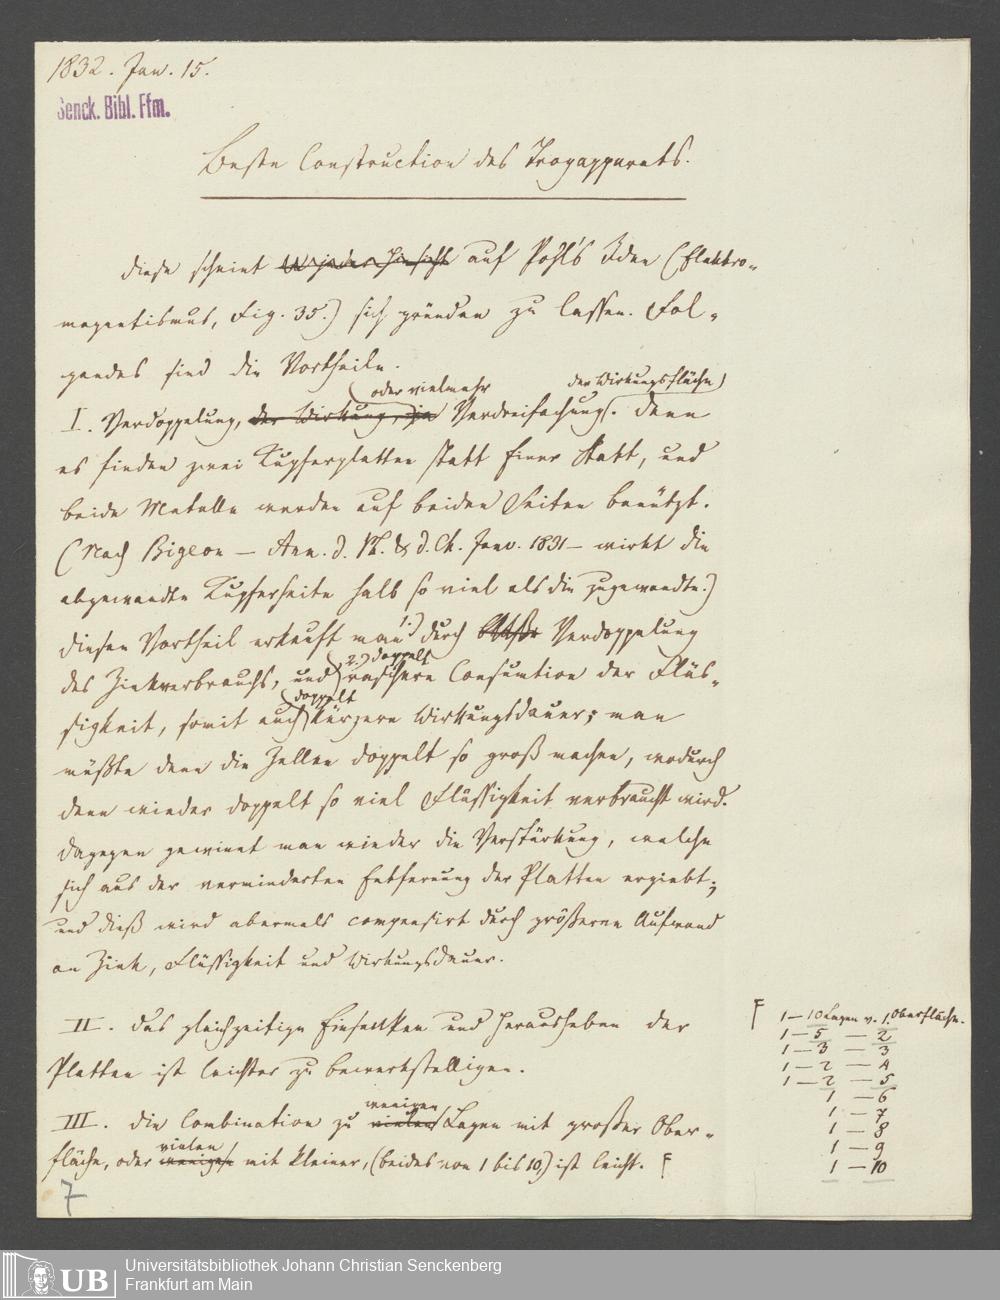 1832. Jan. 15.
Senck. Bibl. Ffm.
Beste Construction des Trogapparats.
Diese scheint in jeder Hinsicht auf Pohl's Idee (Elektro-
magnetismus, Fig. 35.) sich gründen zu lassen. Fol-
gendes sind die Vortheile.
oder vielmehr der Wirkungsfläche
I. Verdoppelung, der Wirkung, ja Verdreifachung. Denn
es finden zwei Kupferplatten statt Einer Statt, und
beide Metalle werden auf beiden Seiten benützt.
(Nach Bigeon – Ann. d. Ph. & d. Ch. Janv. 1831 – wirkt die
abgewandte Kupferseite halb so viel als die zugewandte.)
Diesen Vortheil erkauft man 1.) durch Verdoppelung
2.) doppelt
des Zinkverbrauchs, und raschere Consumtion der Flüs-
doppelt
sigkeit, somit auch kürzere Wirkungsdauer; man
müßte denn die Zellen doppelt so groß machen, wodurch
denn wieder doppelt so viel Flüssigkeit verbraucht wird.
Dagegen gewinnt man wieder die Verstärkung, welche
sich aus der verminderten Entfernung der Platten ergiebt;
und dieß wird abermals compensirt durch größeren Aufwand
an Zink, Flüssigkeit und Wirkungsdauer.
II. Das gleichzeitige Einsenken und Herausheben der
Platten ist leichter zu bewerkstelligen.
wenigen
III. Die Combination zu vielen Lagen mit großer Ober-
vielen
fläche, oder wenigen mit kleiner, (beides von 1 bis 10,) ist leicht. F
F 1 – 10 Lagen v. 1. Oberfläche.
1 – 5 – 2
1 – 3 – 3
1 – 2 – 4
1 – 2 – 5
1 – 6
1 – 7
1 – 8
1 – 9
1 – 10
7
UB
Universitätsbibliothek Johann Christian Senckenberg
Frankfurt am Main